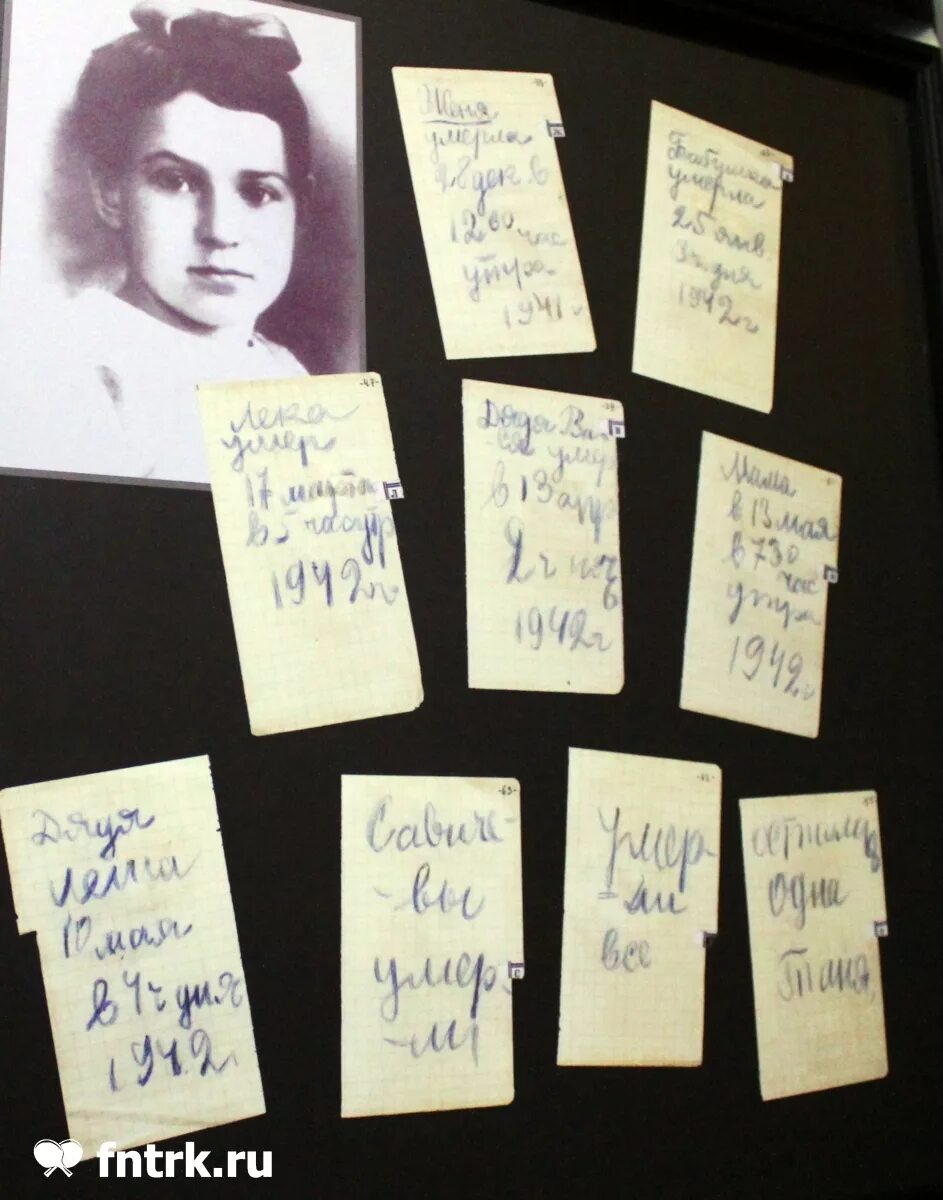 Женя
умерла
28 дек в
12 00 час
утра
1941 г
Бабушка
умерла
25 янв.
3 ч. дня
1942 г
-47-
Лека
умер
17 марта
в 5 час утр
1942 г
Л
Дядя Ва-
ся умер
в 13 апр
2 ч ноч
1942 г
В
Мама
в 13 мая
в 7 30
час
утра
1942 г
Дядя
Леша
10 мая
в 4 ч дня
1942 г
-63-
Савиче-
-вы
умер-
-ли
С
Умер-
-ли
все
осталась
одна
Таня
fntrk.ru